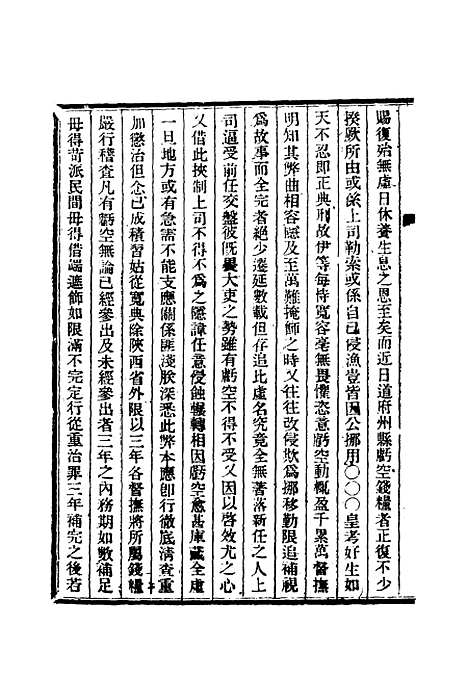 賜復殆無虛日休養生息之恩至矣而近日道府州縣虧空錢糧者正復不少
揆厥所由或係上司勒索或係自己侵漁豈皆因公挪用〇〇〇皇考好生如
天不忍即正典刑故伊等每恃寬容毫無畏懼恣意虧空動輒盈千累萬督撫
明知其弊曲相容隱及至萬難掩飾之時又往往改侵欺爲挪移勒限追補視
爲故事而全完者絕少遷延數載但存追比虛名究竟全無著落新任之人上
司逼受前任交盤彼既畏大吏之勢雖有虧空不得不受又因以啓效尤之心
又借此挾制上司不得不爲之隱諱任意侵蝕輾轉相因虧空愈甚庫藏全虛
一旦地方或有急需不能支應關係匪淺朕深悉此弊本應卽行徹底清查重
加懲治但念已成積習姑從寬典除陝西省外限以三年各督撫將所屬錢糧
嚴行稽查凡有虧空無論已經參出及未經參出者三年之內務期如數補足
毋得苛派民間毋得借端遮飾如限滿不完定行從重治罪三年補完之後若